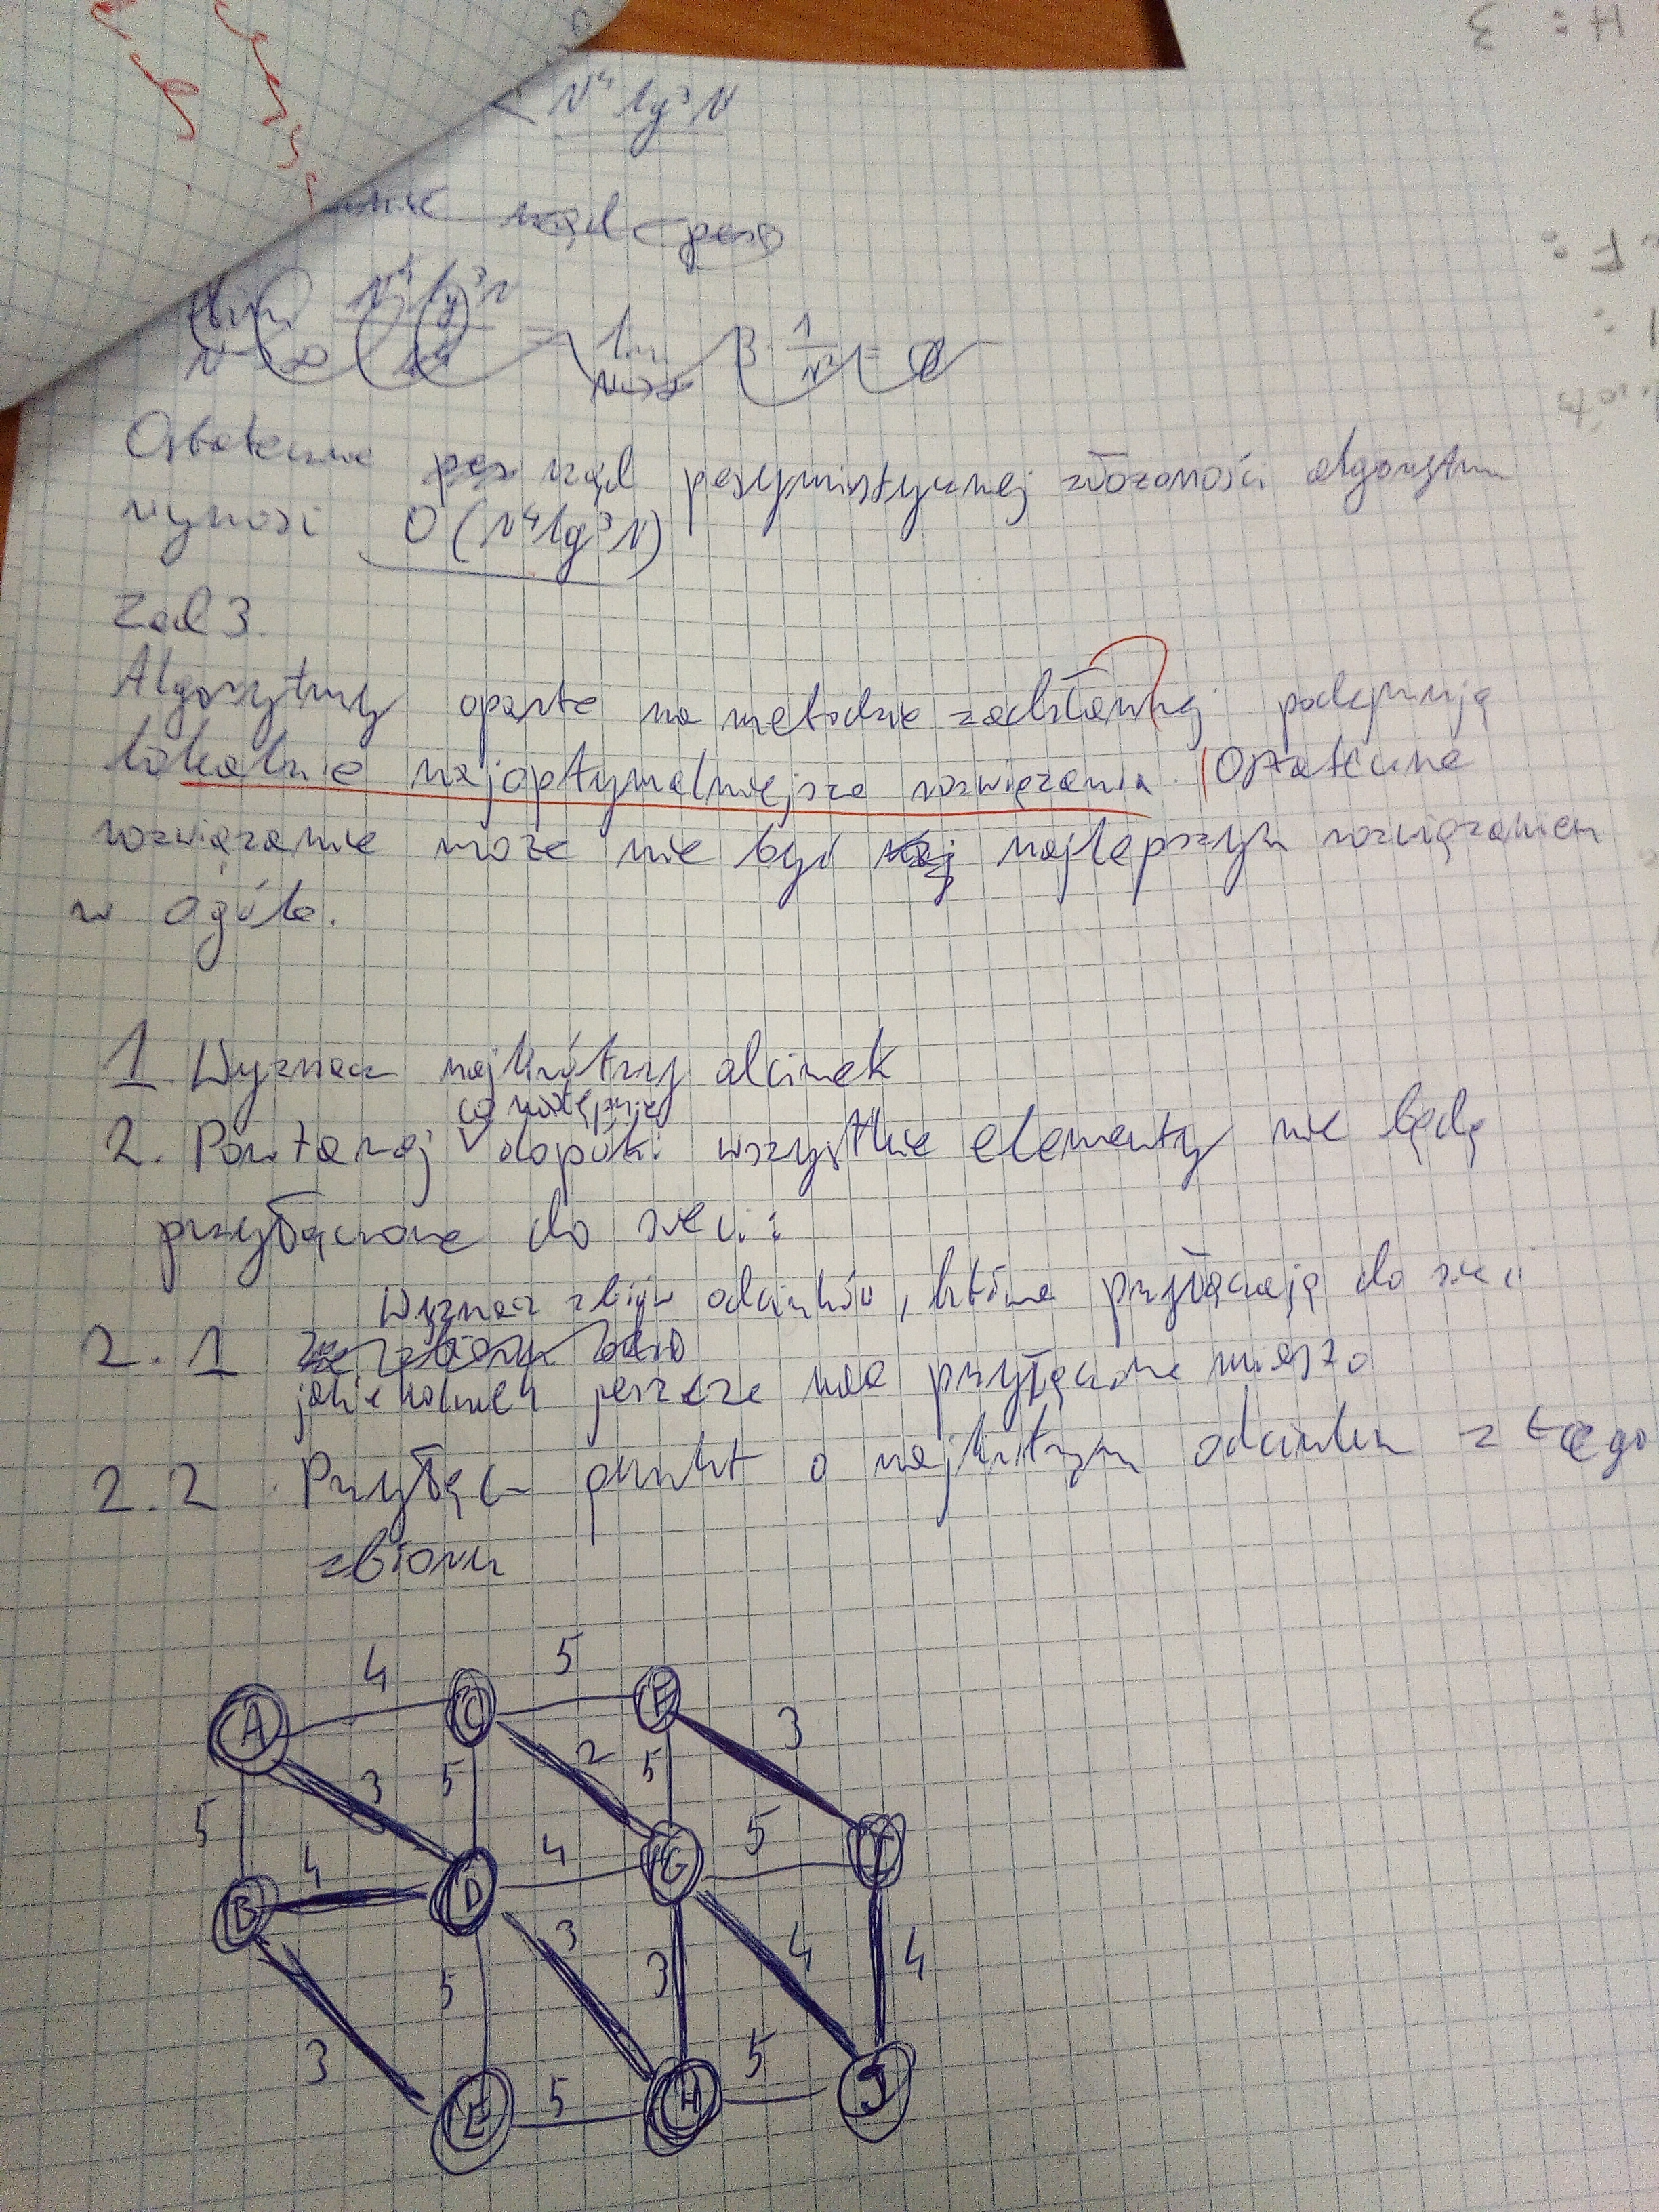 H: 3
F:
N⁴ lg³N
rząd
lim N⁴ lg³N
N→∞
lim 3 · 1/N² = 0
N→∞
Ostatecznie rząd pesymistycznej złożoności algorytmu
wynosi O(N⁴lg³N)
Zad 3.
Algorytmy oparte na metodzie zachłannej podejmują
lokalnie najoptymalniejsze rozwiązania. Ostateczne
rozwiązanie może nie być najlepszym rozwiązaniem
w ogóle.
1. Wyznacz najkrótszy odcinek
co następuje
2. Powtarzaj dopóki wszystkie elementy nie będą
przyłączone do sieci:
Wyznacz zbiór odcinków, które przyłączają do sieci
2.1
jakiekolwiek jeszcze nie przyłączone miasto
2.2. Przyłącz punkt o najkrótszym odcinku z tego
zbioru
4 5
A C F
3 5 2 5 3
5 4 4 5
B D G I
3 3 4 4
5
3 5 5
E H J